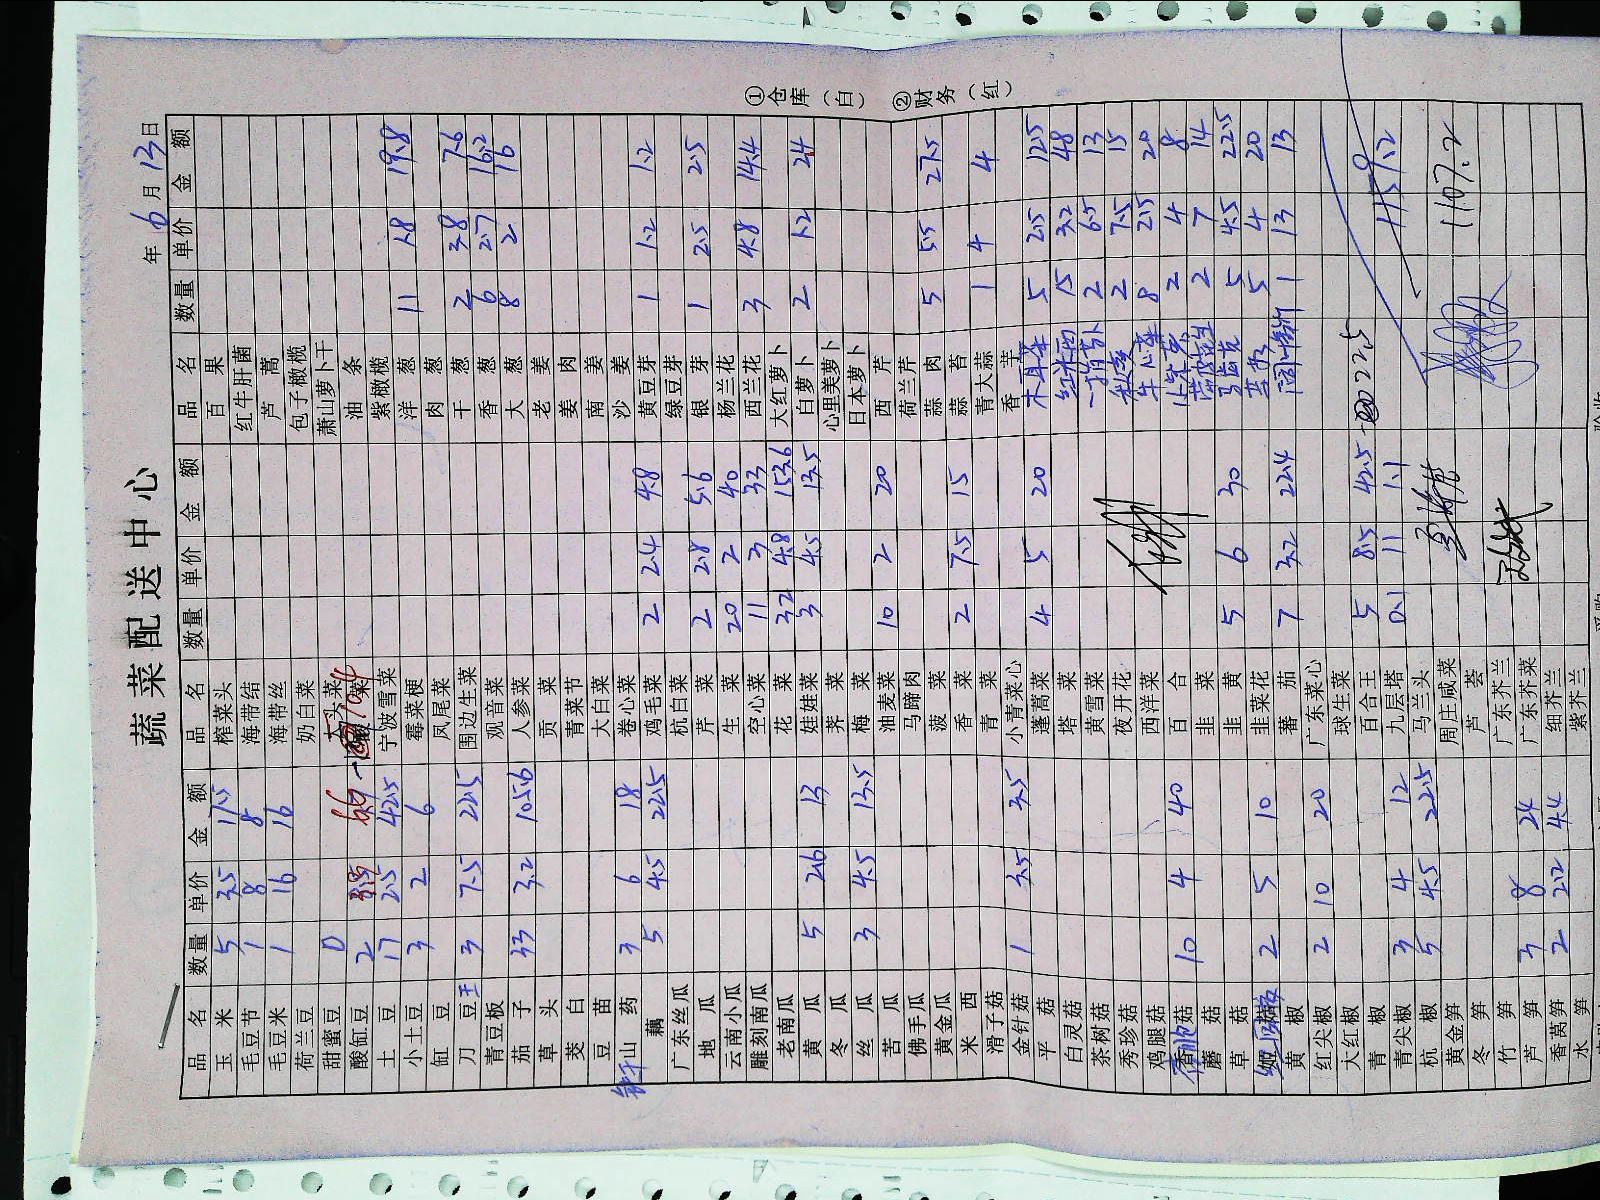 蔬菜配送中心
年 6 月 13 日
品名 数量 单价 金额 品名 数量 单价 金额 品名 数量 单价 金额
玉米 5 3.5 17.5 榨菜头 百果
毛豆节 1 8 8 海带结 红牛肝菌
毛豆米 1 16 16 海带丝 芦蒿
荷兰豆 奶白菜 包子橄榄
甜蜜豆 大头菜 萧山萝卜干
酸缸豆 2 油条
土豆 17 2.5 42.5 宁波雪菜 紫橄榄
小土豆 3 2 6 霉菜梗 洋葱 11 1.8 19.8
缸豆 凤尾菜 肉葱
刀豆王 3 7.5 22.5 围边生菜 干葱 2 3.8 7.6
青豆板 观音菜 香葱 6 2.7 16.2
茄子 33 3.2 105.6 人参菜 大葱 8 2 16
草头 贡菜 老姜
茭白 青菜节 姜肉
豆苗 大白菜 南姜
山药 3 6 18 卷心菜 沙姜
藕 5 4.5 22.5 鸡毛菜 2 2.4 4.8 黄豆芽 1 1.2 1.2
广东丝瓜 杭白菜 绿豆芽
地瓜 芹菜 2 2.8 5.6 银芽 1 2.5 2.5
云南小瓜 生菜 20 2 40 杨兰花
雕刻南瓜 空心菜 11 3 33 西兰花 3 4.8 14.4
老南瓜 花菜 32 4.8 153.6 大红萝卜
黄瓜 5 2.6 13 娃娃菜 3 4.5 13.5 白萝卜 2 1.2 2.4
冬瓜 荠菜 心里美萝卜
丝瓜 3 4.5 13.5 梅菜 日本萝卜
苦瓜 油麦菜 10 2 20 西芹
佛手瓜 马蹄肉 荷兰芹
黄金瓜 菠菜 蒜肉 5 5.5 27.5
米西 香菜 2 7.5 15 蒜苔
滑子菇 青菜 青大蒜 1 4 4
金针菇 1 3.5 3.5 小青菜心 香芋
平菇 蓬蒿菜 4 5 20 木耳菜 5 2.5 12.5
白灵菇 塔菜 红米苋 15 3.2 48
茶树菇 黄雪菜 2 6.5 13
秀珍菇 夜开花 秋葵 2 7.5 15
鸡腿菇 西洋菜 牛心菜 8 2.5 20
香菇 10 4 40 百合 2 4 8
蘑菇 韭菜 2 7 14
草菇 韭黄 5 6 30 马齿苋 5 4.5 22.5
菇 2 5 10 韭菜花 5 4 20
黄椒 蕃茄 7 3.2 22.4 1 13 13
红尖椒 2 10 20 广东菜心
大红椒 球生菜
青椒 百合王 5 8.5 42.5
青尖椒 3 4 12 九层塔 0.1 11 1.1 1159.2
杭椒 5 4.5 22.5 马兰头
黄金笋 周庄咸菜
冬笋 芦荟 1107.2
竹笋 广东芥兰
芦笋 3 8 24 广东芥菜
香莴笋 2 2.2 4.4 细芥兰
水笋 紫芥兰
①仓库（白） ②财务（红）